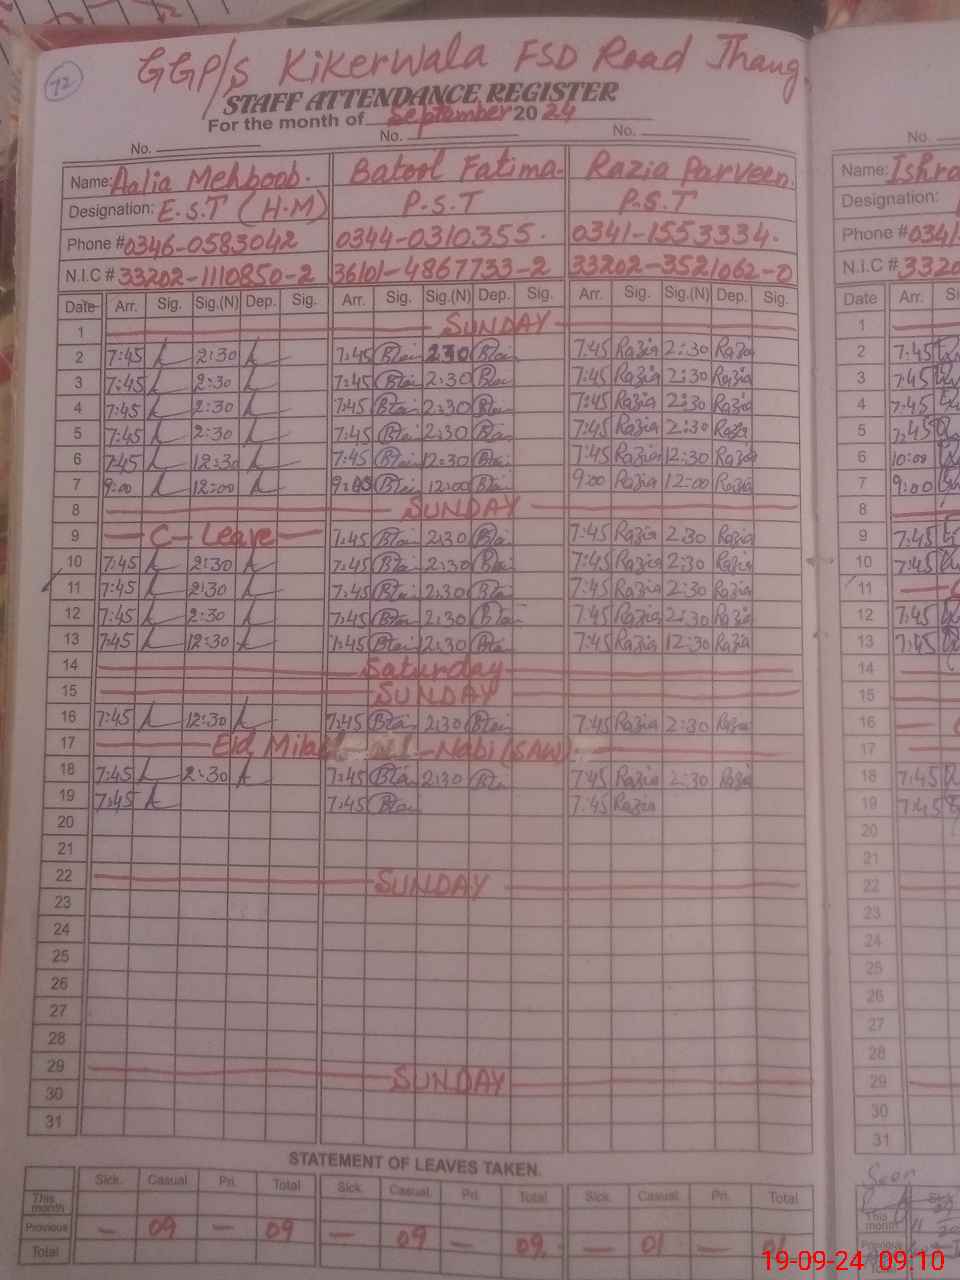 72
GGP/S Kikerwala FSD Road Jhang.
STAFF ATTENDANCE REGISTER
For the month of September 2024
No. No. No. No.
Name: Aalia Mehboob. Batool Fatima. Razia Parveen. Name: Ishra
Designation: E.S.T (H.M) P.S.T P.S.T Designation:
Phone # 0346-0583042 0344-0310355. 0341-1553334. Phone # 0341
N.I.C # 33202-1110850-2 36101-4867733-2 33202-3521062-0 N.I.C # 3320
Date Arr. Sig. Sig.(N) Dep. Sig. Arr. Sig. Sig.(N) Dep. Sig. Arr. Sig. Sig.(N) Dep. Sig. Date Arr.
1 SUNDAY 1
2 7:45 2:30 7:45 2:30 7:45 Razia 2:30 Razia 2 7:45
3 7:45 2:30 7:45 2:30 7:45 Razia 2:30 Razia 3 7:45
4 7:45 2:30 7:45 2:30 7:45 Razia 2:30 Razia 4 7:45
5 7:45 2:30 7:45 2:30 7:45 Razia 2:30 Razia 5 7:45
6 7:45 12:30 7:45 12:30 7:45 Razia 12:30 Razia 6 10:00
7 9:00 12:00 9:00 12:00 9:00 Razia 12:00 Razia 7 9:00
8 SUNDAY 8
9 C- Leave 7:45 2:30 7:45 Razia 2:30 Razia 9 7:45
10 7:45 2:30 7:45 2:30 7:45 Razia 2:30 Razia 10 7:45
11 7:45 2:30 7:45 2:30 7:45 Razia 2:30 Razia 11
12 7:45 2:30 7:45 2:30 7:45 Razia 2:30 Razia 12 7:45
13 7:45 12:30 7:45 12:30 7:45 Razia 12:30 Razia 13 7:45
14 Saturday 14
15 SUNDAY 15
16 7:45 12:30 7:45 2:30 7:45 Razia 2:30 Razia 16
17 Eid Milad -Nabi (SAW) 17
18 7:45 2:30 7:45 2:30 7:45 Razia 2:30 Razia 18 7:45
19 7:45 7:45 7:45 Razia 19 7:45
20 20
21 21
22 SUNDAY 22
23 23
24 24
25 25
26 26
27 27
28 28
29 SUNDAY 29
30 30
31 31
STATEMENT OF LEAVES TAKEN.
Sick. Casual Pri. Total Sick. Casual Pri. Total Sick. Casual Pri. Total Sick
This month This month
Previous — 09 — 09 — 09 — 09. — 01 — 01 Previous
Total Total
19-09-24 09:10